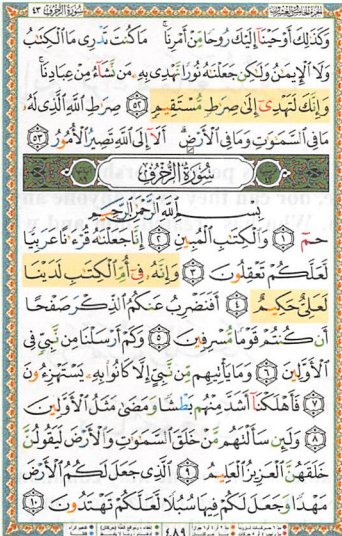 الجزء الخامس والعشرون سورة الزخرف ٤٣
وَكَذَٰلِكَ أَوْحَيْنَآ إِلَيْكَ رُوحًا مِّنْ أَمْرِنَا ۚ مَا كُنتَ تَدْرِى مَا ٱلْكِتَٰبُ
وَلَا ٱلْإِيمَٰنُ وَلَٰكِن جَعَلْنَٰهُ نُورًا نَّهْدِى بِهِۦ مَن نَّشَآءُ مِنْ عِبَادِنَا ۚ
وَإِنَّكَ لَتَهْدِىٓ إِلَىٰ صِرَٰطٍ مُّسْتَقِيمٍ ٥٢ صِرَٰطِ ٱللَّهِ ٱلَّذِى لَهُۥ
مَا فِى ٱلسَّمَٰوَٰتِ وَمَا فِى ٱلْأَرْضِ ۗ أَلَآ إِلَى ٱللَّهِ تَصِيرُ ٱلْأُمُورُ ٥٣
سُورَةُ الزُّخْرُفِ
بِسْمِ ٱللَّهِ ٱلرَّحْمَٰنِ ٱلرَّحِيمِ
حمٓ ١ وَٱلْكِتَٰبِ ٱلْمُبِينِ ٢ إِنَّا جَعَلْنَٰهُ قُرْءَٰنًا عَرَبِيًّا
لَّعَلَّكُمْ تَعْقِلُونَ ٣ وَإِنَّهُۥ فِىٓ أُمِّ ٱلْكِتَٰبِ لَدَيْنَا
لَعَلِىٌّ حَكِيمٌ ٤ أَفَنَضْرِبُ عَنكُمُ ٱلذِّكْرَ صَفْحًا
أَن كُنتُمْ قَوْمًا مُّسْرِفِينَ ٥ وَكَمْ أَرْسَلْنَا مِن نَّبِىٍّ فِى
ٱلْأَوَّلِينَ ٦ وَمَا يَأْتِيهِم مِّن نَّبِىٍّ إِلَّا كَانُوا۟ بِهِۦ يَسْتَهْزِءُونَ
٧ فَأَهْلَكْنَآ أَشَدَّ مِنْهُم بَطْشًا وَمَضَىٰ مَثَلُ ٱلْأَوَّلِينَ
٨ وَلَئِن سَأَلْتَهُم مَّنْ خَلَقَ ٱلسَّمَٰوَٰتِ وَٱلْأَرْضَ لَيَقُولُنَّ
خَلَقَهُنَّ ٱلْعَزِيزُ ٱلْعَلِيمُ ٩ ٱلَّذِى جَعَلَ لَكُمُ ٱلْأَرْضَ
مَهْدًا وَجَعَلَ لَكُمْ فِيهَا سُبُلًا لَّعَلَّكُمْ تَهْتَدُونَ ١٠
٤٨٩